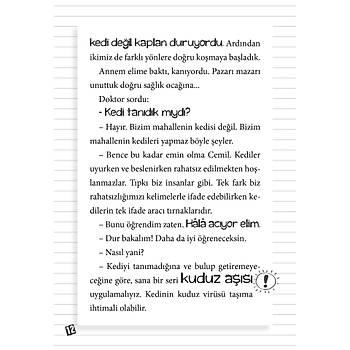 kedi değil kaplan duruyordu. Ardından
ikimiz de farklı yönlere doğru koşmaya başladık.
Annem elime baktı, kanıyordu. Pazarı mazarı
unuttuk doğru sağlık ocağına...
Doktor sordu:
- Kedi tanıdık mıydı?
– Hayır. Bizim mahallenin kedisi değil. Bizim
mahallenin kedileri yapmaz böyle şeyler.
– Bence bu kadar emin olma Cemil. Kediler
uyurken ve beslenirken rahatsız edilmekten hoş-
lanmazlar. Tıpkı biz insanlar gibi. Tek fark biz
rahatsızlığımızı kelimelerle ifade edebilirken ke-
dilerin tek ifade aracı tırnaklarıdır.
– Bunu öğrendim zaten. Hâlâ acıyor elim.
– Dur bakalım! Daha da iyi öğreneceksin.
– Nasıl yani?
– Kediyi tanımadığına ve bulup getiremeye-
ceğine göre, sana bir seri kuduz aşısı !
uygulamalıyız. Kedinin kuduz virüsü taşıma
ihtimali olabilir.
12